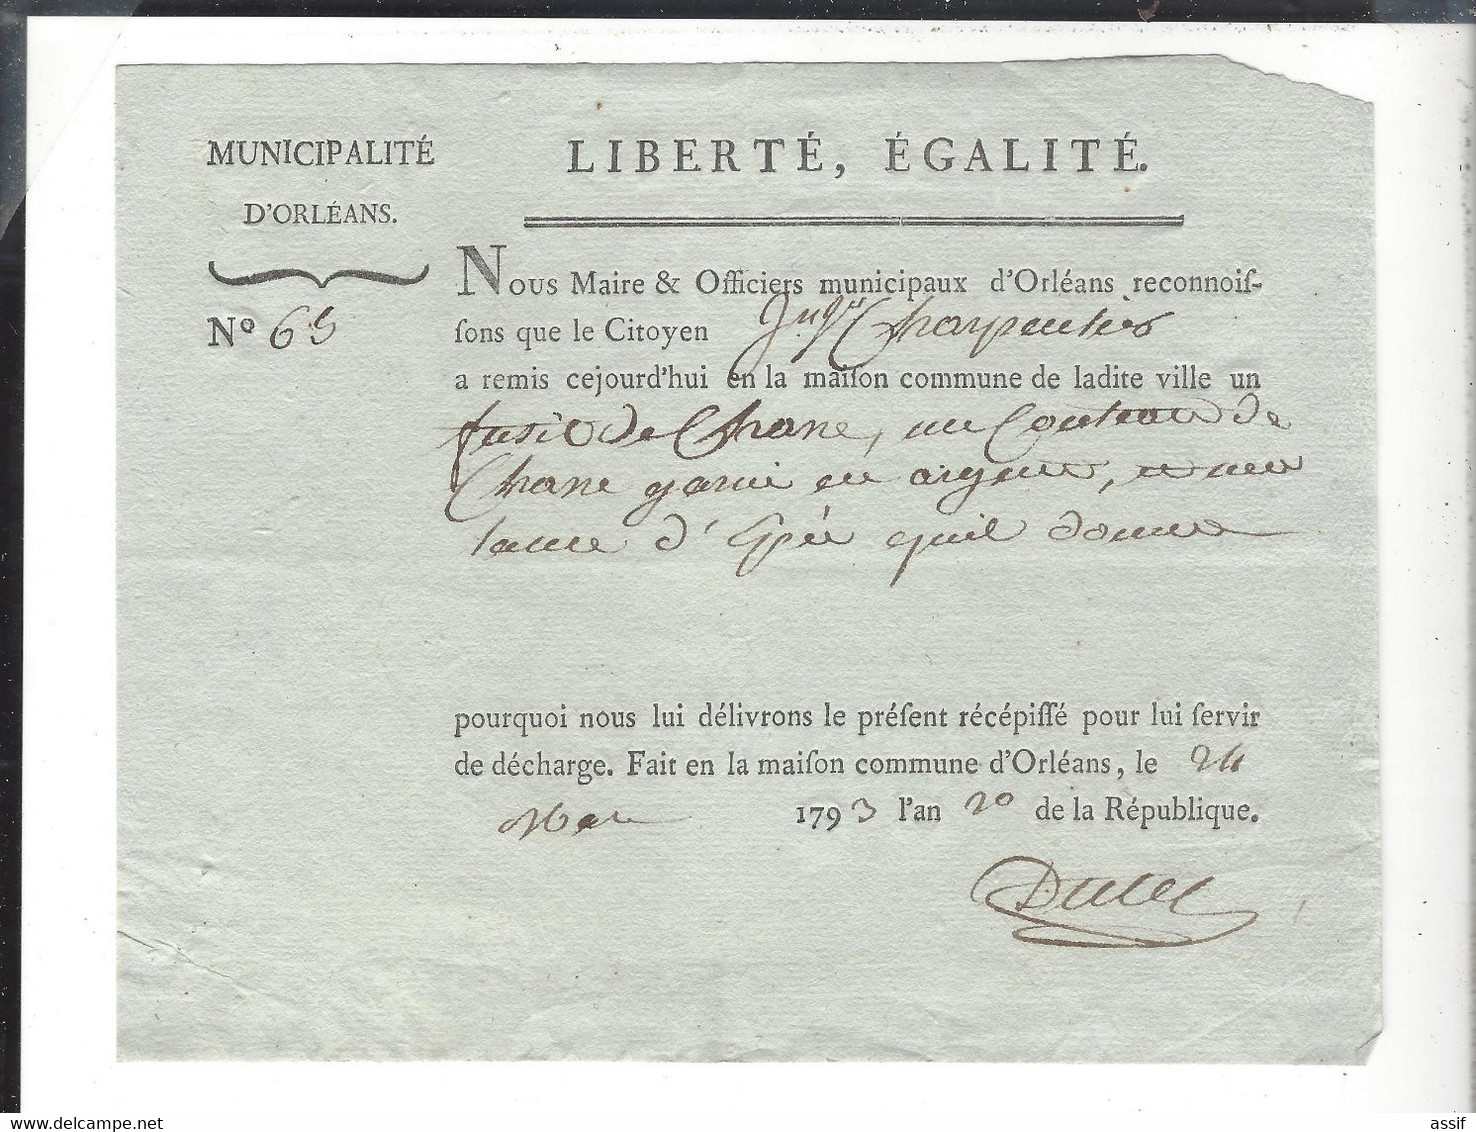 MUNICIPALITÉ
D'ORLÉANS.
LIBERTÉ, ÉGALITÉ.
Nº 65
Nous Maire & Officiers municipaux d'Orléans reconnoiſ-
ſons que le Citoyen Charpentier
a remis cejourd'hui en la maiſon commune de ladite ville un
fusil de Chasse, un Couteau de
Chasse garni en argent, et une
lame d'Epée qu'il donne
pourquoi nous lui délivrons le préſent récépiſſé pour lui ſervir
de décharge. Fait en la maiſon commune d'Orléans, le 24
Mars 1793 l'an 2º de la République.
assif